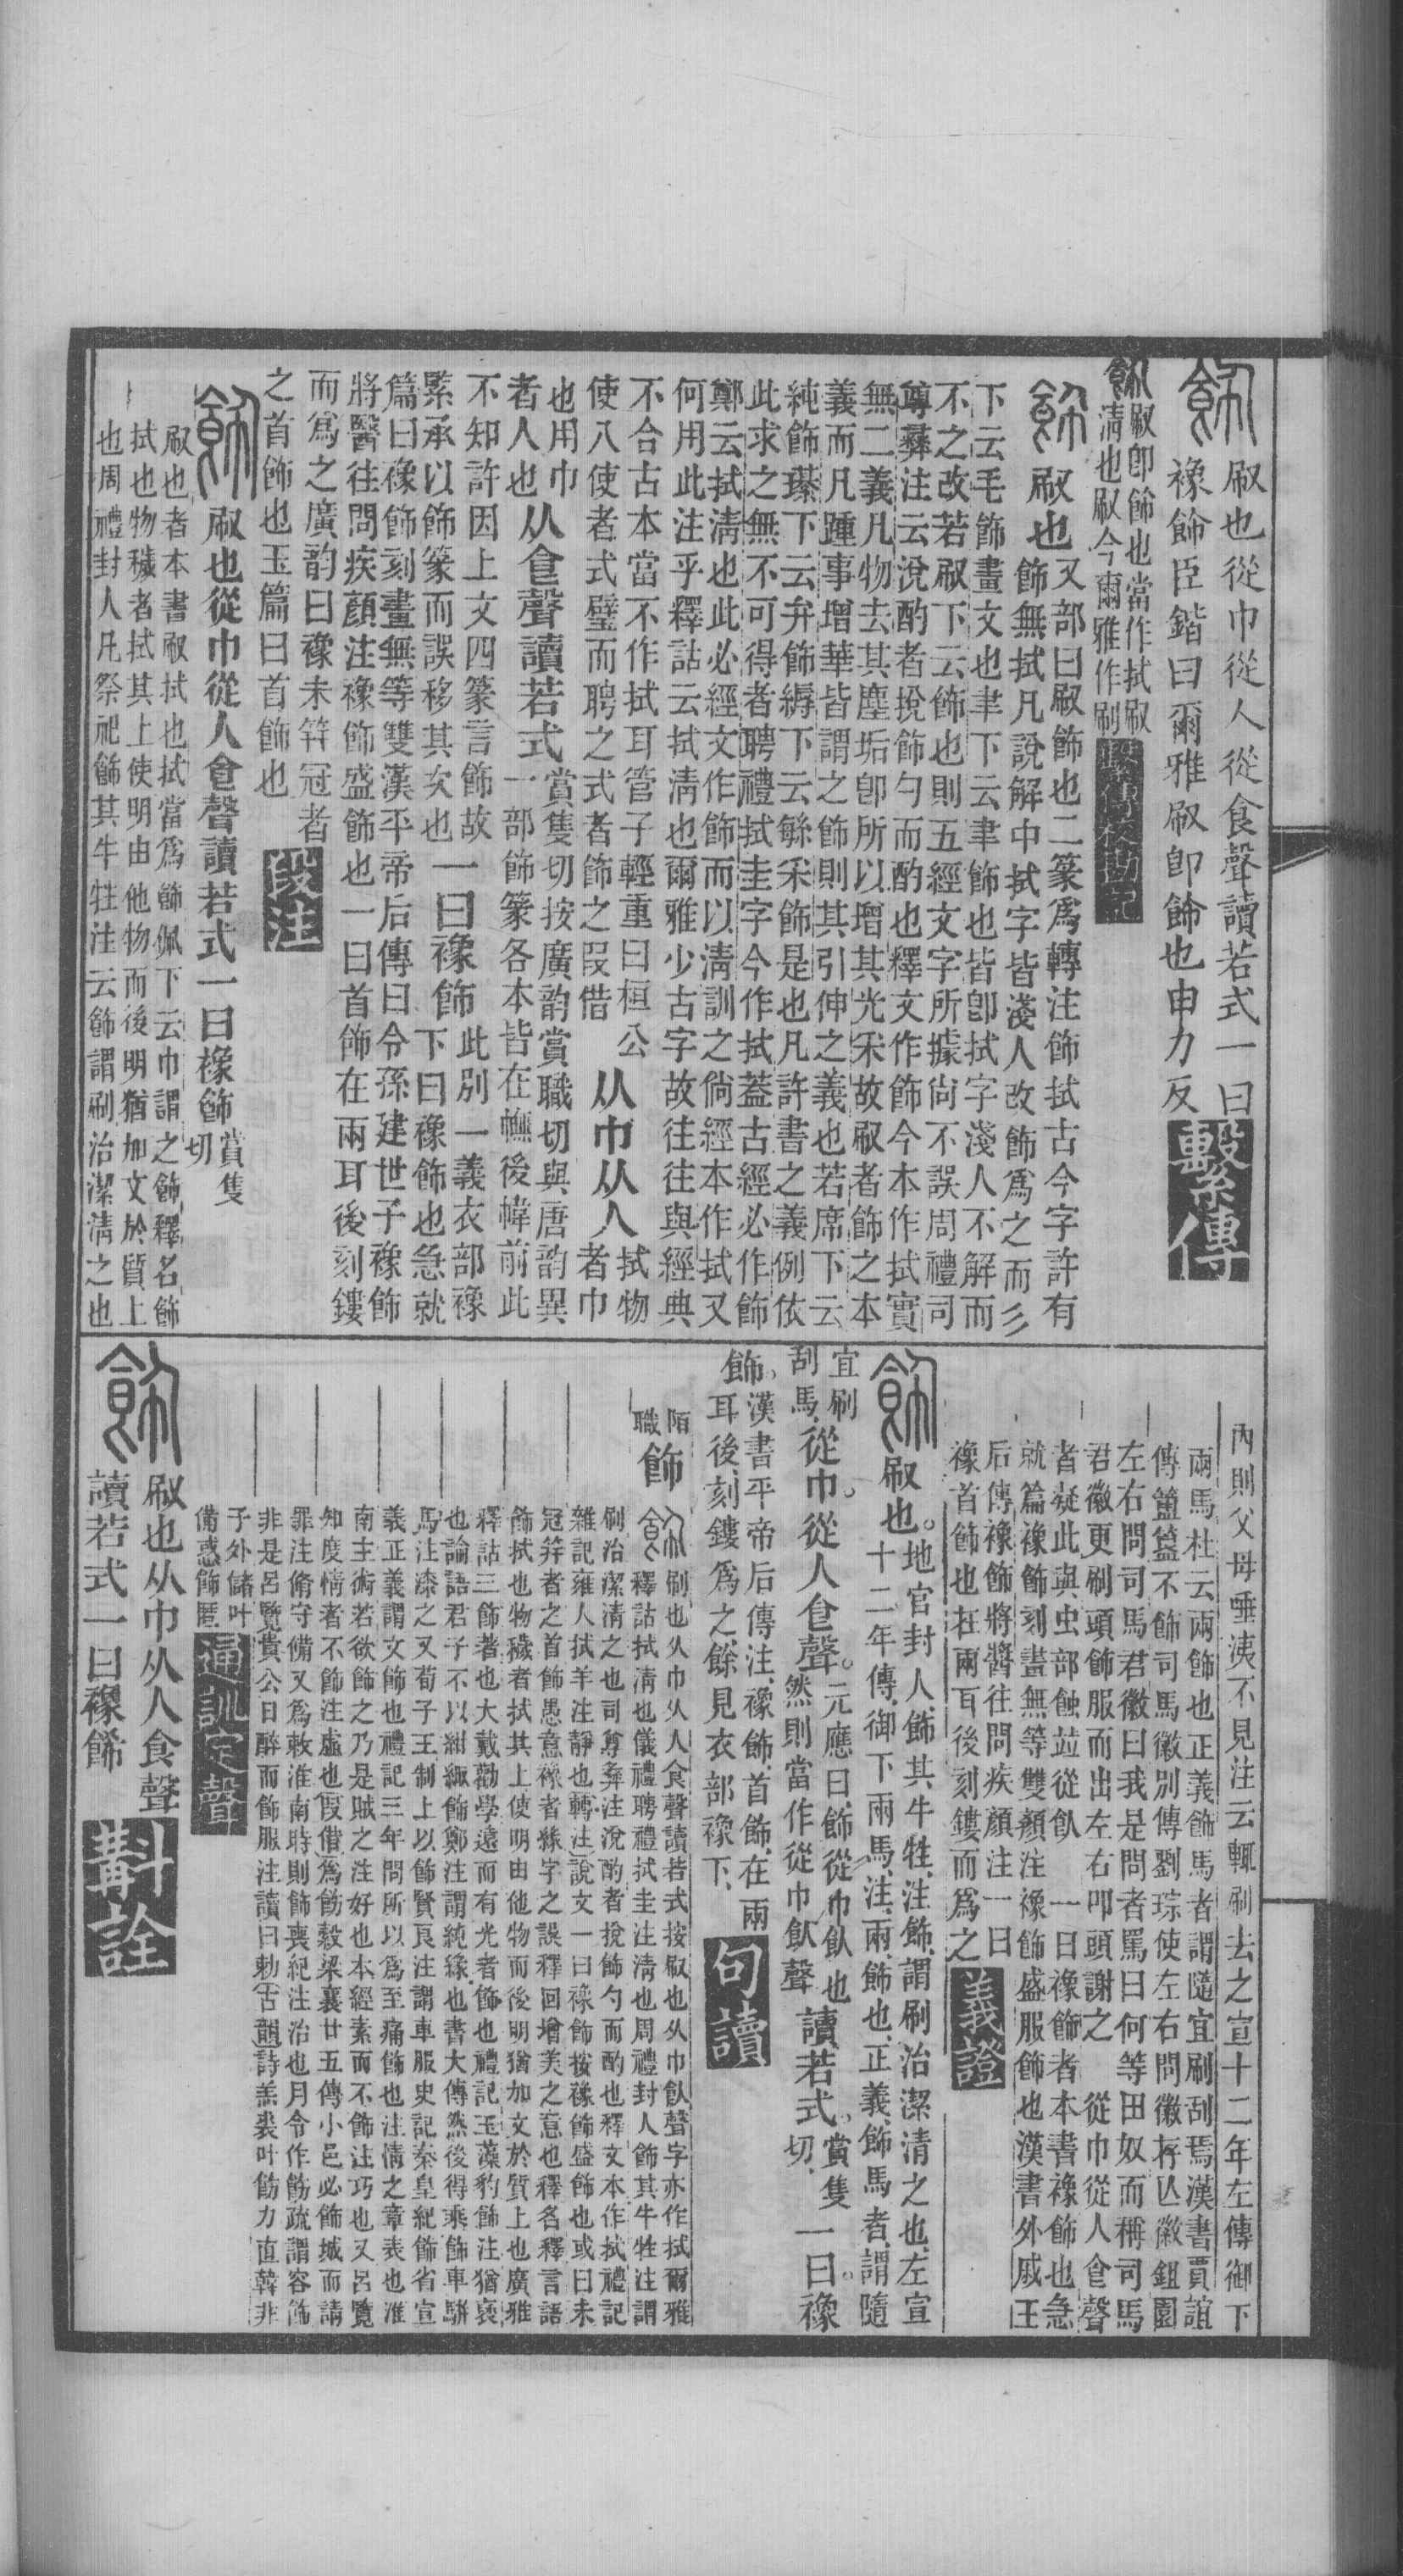 飾㕞也從巾從人從食聲讀若式一曰
襐飾臣鍇曰爾雅㕞卽飾也申力反
繫傳
飾㕞卽飾也當作拭㕞
淸也㕞今爾雅作刷
繫傳校勘記
飾㕞也又部曰㕞飾也二篆爲轉注飾拭古今字許有
飾無拭凡說解中拭字皆淺人改飾爲之而彡
下云毛飾畫文也聿下云聿飾也皆卽拭字淺人不解而
不之改若㕞下云飾也則五經文字所據尙不誤周禮司
尊彝注云涗酌者捝飾勺而酌也釋文作飾今本作拭實
無二義凡物去其塵垢卽所以增其光采故㕞者飾之本
義而凡踵事增華皆謂之飾則其引伸之義也若席下云
純飾璂下云弁飾縟下云緐采飾是也凡許書之義例依
此求之無不可得者聘禮拭圭字今作拭葢古經必作飾
鄭云拭淸也此必經文作飾而以淸訓之倘經本作拭又
何用此注乎釋詁云拭淸也爾雅少古字故往往與經典
不合古本當不作拭耳管子輕重曰桓公
使八使者式璧而聘之式者飾之叚借
从巾从人
拭物
者巾
也用巾
者人也
从㑹聲讀若式
賞隻切按廣韵賞職切與唐韵異
一部飾篆各本皆在幠後幃前此
不知許因上文四篆言飾故
繄承以飾篆而誤移其次也
一曰襐飾
此別一義衣部襐
下曰襐飾也急就
篇曰襐飾刻畫無等雙漢平帝后傳曰令孫建世子襐飾
將醫往問疾顏注襐飾盛飾也一曰首飾在兩耳後刻鏤
而爲之廣韵曰襐未笄冠者
之首飾也玉篇曰首飾也
段注
飾㕞也從巾從人㑹聲讀若式一曰襐飾
賞隻
切
㕞也者本書㕞拭也拭當爲飾佩下云巾謂之飾釋名飾
拭也物穢者拭其上使明由他物而後明猶加文於質上
也周禮封人凡祭祀飾其牛牲注云飾謂刷治潔淸之也
內則父母唾洟不見注云輒刷去之宣十二年左傳御下
兩馬杜云兩飾也正義飾馬者謂隨宜刷刮焉漢書賈誼
傳簠簋不飾司馬徽別傳劉琮使左右問徽存亾徽鉏園
左右問司馬君徽曰我是問者罵曰何等田奴而稱司馬
君徽更刷頭飾服而出左右叩頭謝之　從巾從人㑹聲
者疑此與虫部蝕竝從飤　一曰襐飾者本書襐飾也急
就篇襐飾刻畫無等雙顏注襐飾盛服飾也漢書外戚王
后傳襐飾將醫往問疾顏注一曰
襐首飾也在兩耳後刻鏤而爲之
義證
飾㕞也。
地官封人、飾其牛牲、注、飾、謂刷治潔淸之也、左宣
十二年傳、御下兩馬、注、兩、飾也、正義、飾馬者、謂隨
宜刷
刮馬、
從巾。從人㑹聲。
元應曰、飾從巾飤也
然則當作從巾飤聲
讀若式。
賞隻
切、
一曰。襐
飾。
漢書平帝后傳注、襐飾、首飾、在兩
耳後、刻鏤爲之、餘見衣部襐下、
句讀
陌
職
飾
飾刷也从巾从人食聲讀若式按㕞也从巾飤聲字亦作拭爾雅
釋詁拭淸也儀禮聘禮拭圭注淸也周禮封人飾其牛牲注謂
刷治潔淸之也司尊彝注涗酌者捝飾勺而酌也釋文本作拭禮記
雜記雍人拭羊注靜也轉注說文一曰襐飾按襐飾盛飾也或曰未
冠笄者之首飾愚意襐者緣字之誤釋回增美之意也釋名釋言語
飾拭也物穢者拭其上使明由他物而後明猶加文於質上也廣雅
釋詁三飾著也大戴勸學遠而有光者飾也禮記玉藻豹飾注猶褎
也論語君子不以紺緅飾鄭注謂純緣也書大傳然後得乘飾車駢
馬注漆之又荀子王制上以飾賢良注謂車服史記秦皇紀飾省宣
義正義謂文飾也禮記三年問所以爲至痛飾也注情之章表也淮
南主術若欲飾之乃是賊之注好也本經素而不飾注巧也又呂覽
知度情者不飾注虛也叚借爲飭穀梁襄廿五傳小邑必飾城而請
罪注脩守備又爲敕淮南時則飾喪紀注治也月令作飭疏謂容飾
非是呂覽貴公日醉而飾服注讀曰勅古韻詩羔裘叶飾力直韓非
子外儲叶
備惑飾匿
通訓定聲
飾㕞也从巾从人食聲
讀若式一曰襐飾
斠詮